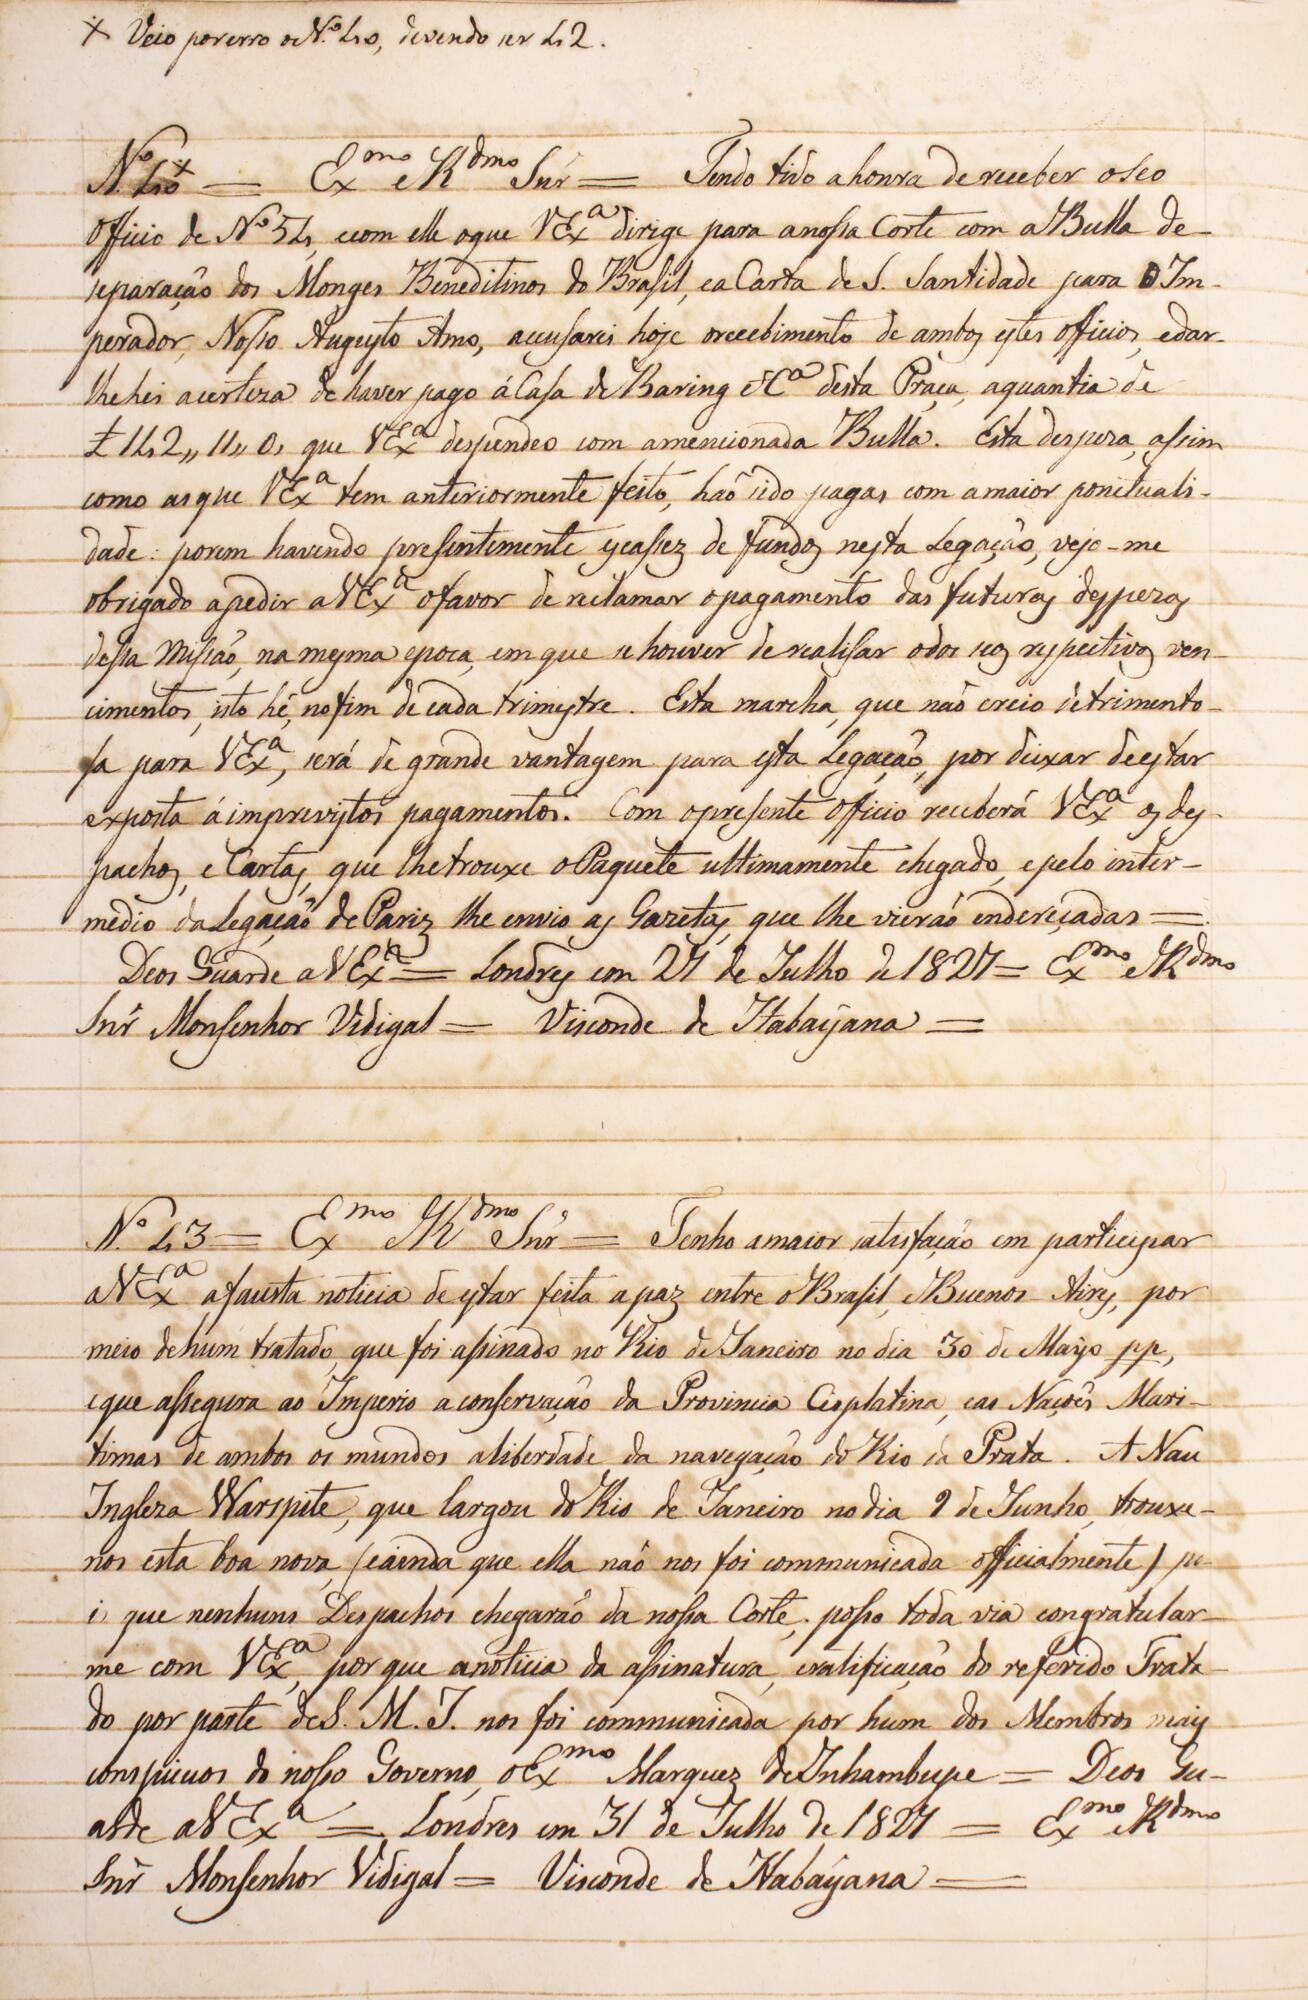 × Veio por erro o N.º 40, devendo ser 42.
N.º 40× = Exmo e Rdmo Snr = Tendo tido a honra de receber o seo
Officio de Nº 54, e com elle o que VExª dirige para a nossa Corte com a Bulla de
separação dos Monges Beneditinos do Brasil, e a Carta de S. Santidade para O Im-
perador, Nosso Augusto Amo, accusarei hoje o recebimento de ambos estes officios, e dar-
lhe hei a certeza de haver pago á Casa de Baring e Cª desta Praça, a quantia de
£ 142,, 11,, 0, que VExª despendeo com a mencionada Bulla. Esta despeza, assim
como as que VExª tem anteriormente feito, haõ sido pagas com a maior pontuali-
dade: porem havendo presentemente escassez de fundos nesta Legação, vejo-me
obrigado a pedir a VExª o favor de reclamar o pagamento das futuras despezas
dessa Missaõ, na mesma epoca, em que se houver de realisar o dos seos respectivos ven-
cimentos, isto hé, no fim de cada trimestre. Esta marcha, que não creio detrimento-
sa para VExª, será de grande vantagem para esta Legação, por deixar de estar
exposta á imprevistos pagamentos. Com o presente Officio receberá VExª os des-
pachos, e Cartas, que lhe trouxe o Paquete ultimamente chegado, e pelo inter-
medio da Legação de Pariz lhe envio as Gazetas, que lhe vieraõ endereçadas =
Deos Guarde a VExª = Londres em 27 de Julho de 1827 = Exmo e Rdmo
Snr Monsenhor Vidigal = Visconde de Itabayana =
N.º 43 = Exmo e Rdmo Snr = Tenho a maior satisfação em participar
a VExª a fausta noticia de estar feita a paz entre o Brasil, e Buenos Aires, por
meio de hum tratado, que foi assinado no Rio de Janeiro no dia 30 de Mayo pp,
e que assegura ao Imperio a conservação da Provincia Cisplatina, e as Nações Mari-
timas de ambos os mundos a liberdade da navegação do Rio da Prata. A Nau
Ingleza Warspite, que largou do Rio de Janeiro no dia 9 de Junho, trouxe-
nos esta boa nova, (e ainda que ella naõ nos foi communicada officialmente) po-
is que nenhuns Despachos chegaraõ da nossa Corte, posso toda via congratular-
me com VExª, por que a noticia da assinatura, e ratificação do referido Trata-
do por parte de S. M. I. nos foi communicada por hum dos Membros mais
conspicuos do nosso Governo, o Exmo Marquez de Inhambupe = Deos Gu-
arde a VExª = Londres em 31 de Julho de 1827 = Exmo e Rdmo
Snr Monsenhor Vidigal = Visconde de Itabayana =